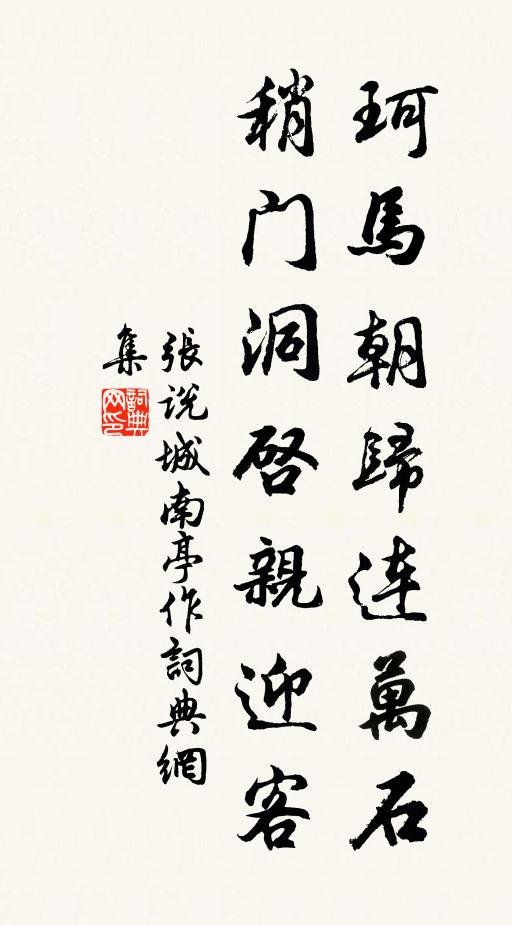 珂馬朝歸連萬石
稍门洞啓親迎客
張说城南亭作詞典網
集
詞典
网印